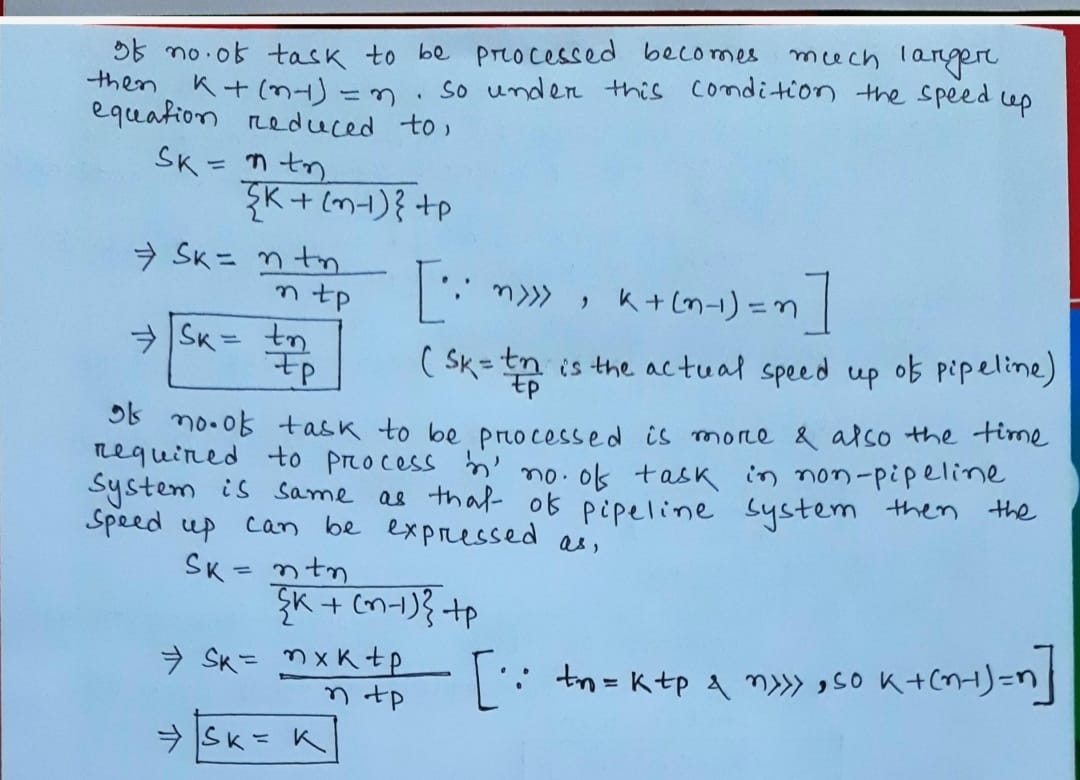 If no. of task to be processed becomes much larger
then K + (n-1) = n . So under this condition the speed up
equation reduced to,
SK = n tn
{K + (n-1)} tp
⇒ SK = n tn
n tp
[∵ n>>> , K + (n-1) = n]
⇒ SK = tn
tp
( SK = tn/tp is the actual speed up of pipeline)
If no. of task to be processed is more & also the time
required to process 'n' no. of task in non-pipeline
System is same as that of pipeline system then the
speed up can be expressed as,
SK = n tn
{K + (n-1)} tp
⇒ SK = n x K tp
n tp
[∵ tn = K tp & n>>> , so K + (n-1) = n]
⇒ SK = K